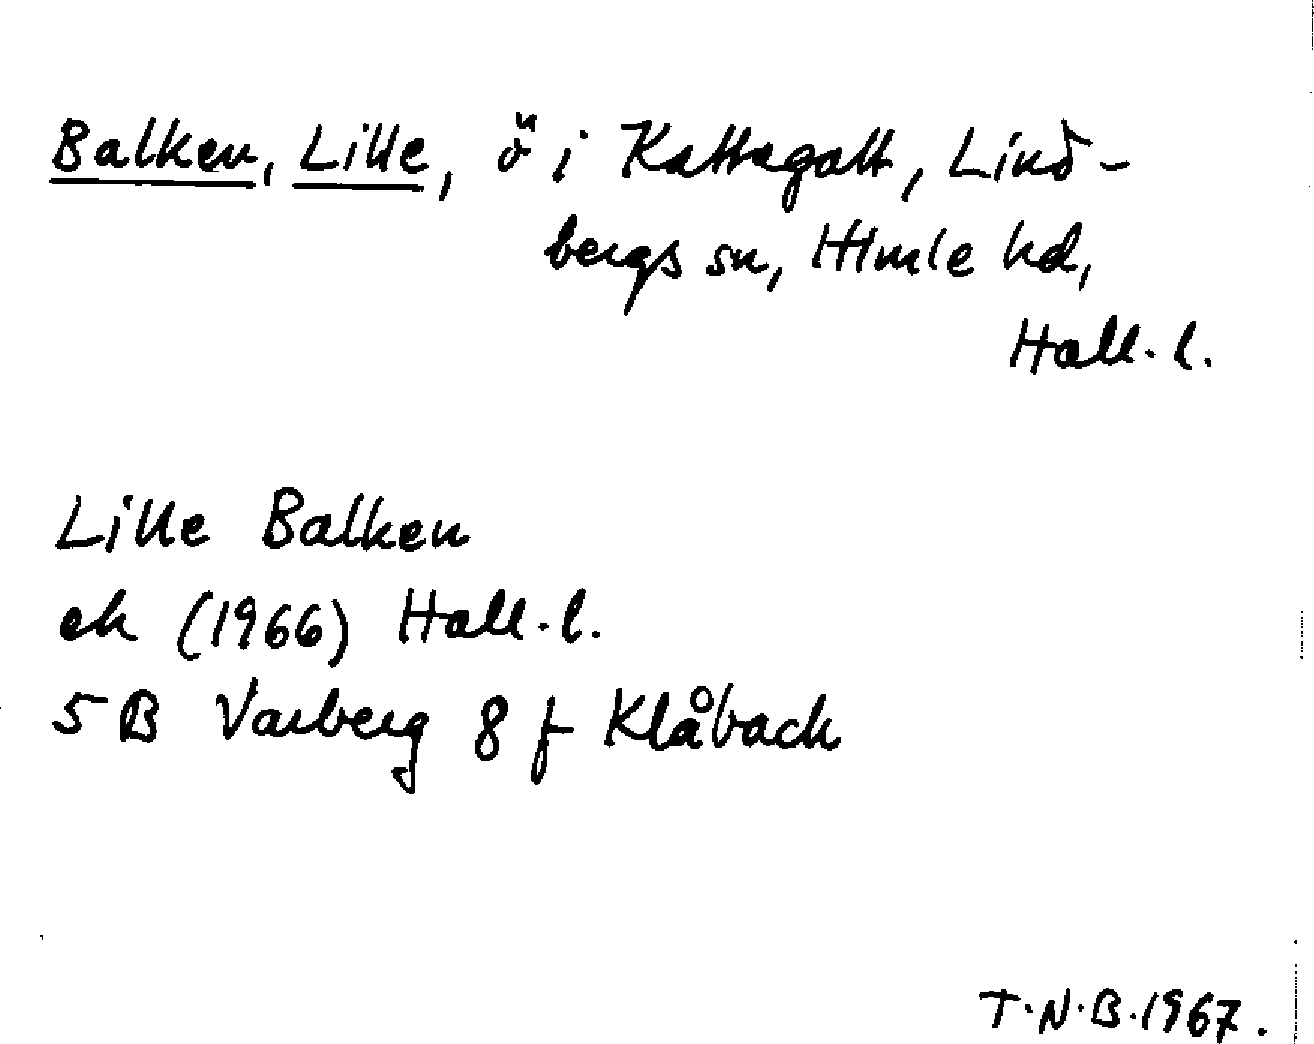 Balken, Lille, ö i Kattegatt, Lind-
bergs sn, Himle hd,
Hall. l.
Lille Balken
ek (1966) Hall. l.
5 B Varberg 8 f Klåback
T.N.B. 1967.